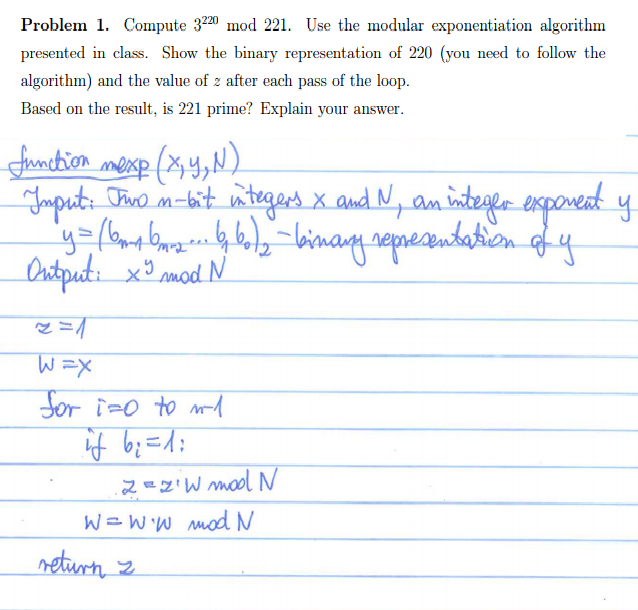 Problem 1. Compute 3²²⁰ mod 221. Use the modular exponentiation algorithm
presented in class. Show the binary representation of 220 (you need to follow the
algorithm) and the value of z after each pass of the loop.
Based on the result, is 221 prime? Explain your answer.
function mexp (x, y, N)
Input: Two n-bit integers x and N, an integer exponent y
y = (bₘ₋₁ bₘ₋₂ ... b₁ b₀)₂ - binary representation of y
Output: x^y mod N
z = 1
w = x
for i=0 to n-1
if bᵢ=1:
z = z·w mod N
w = w·w mod N
return z